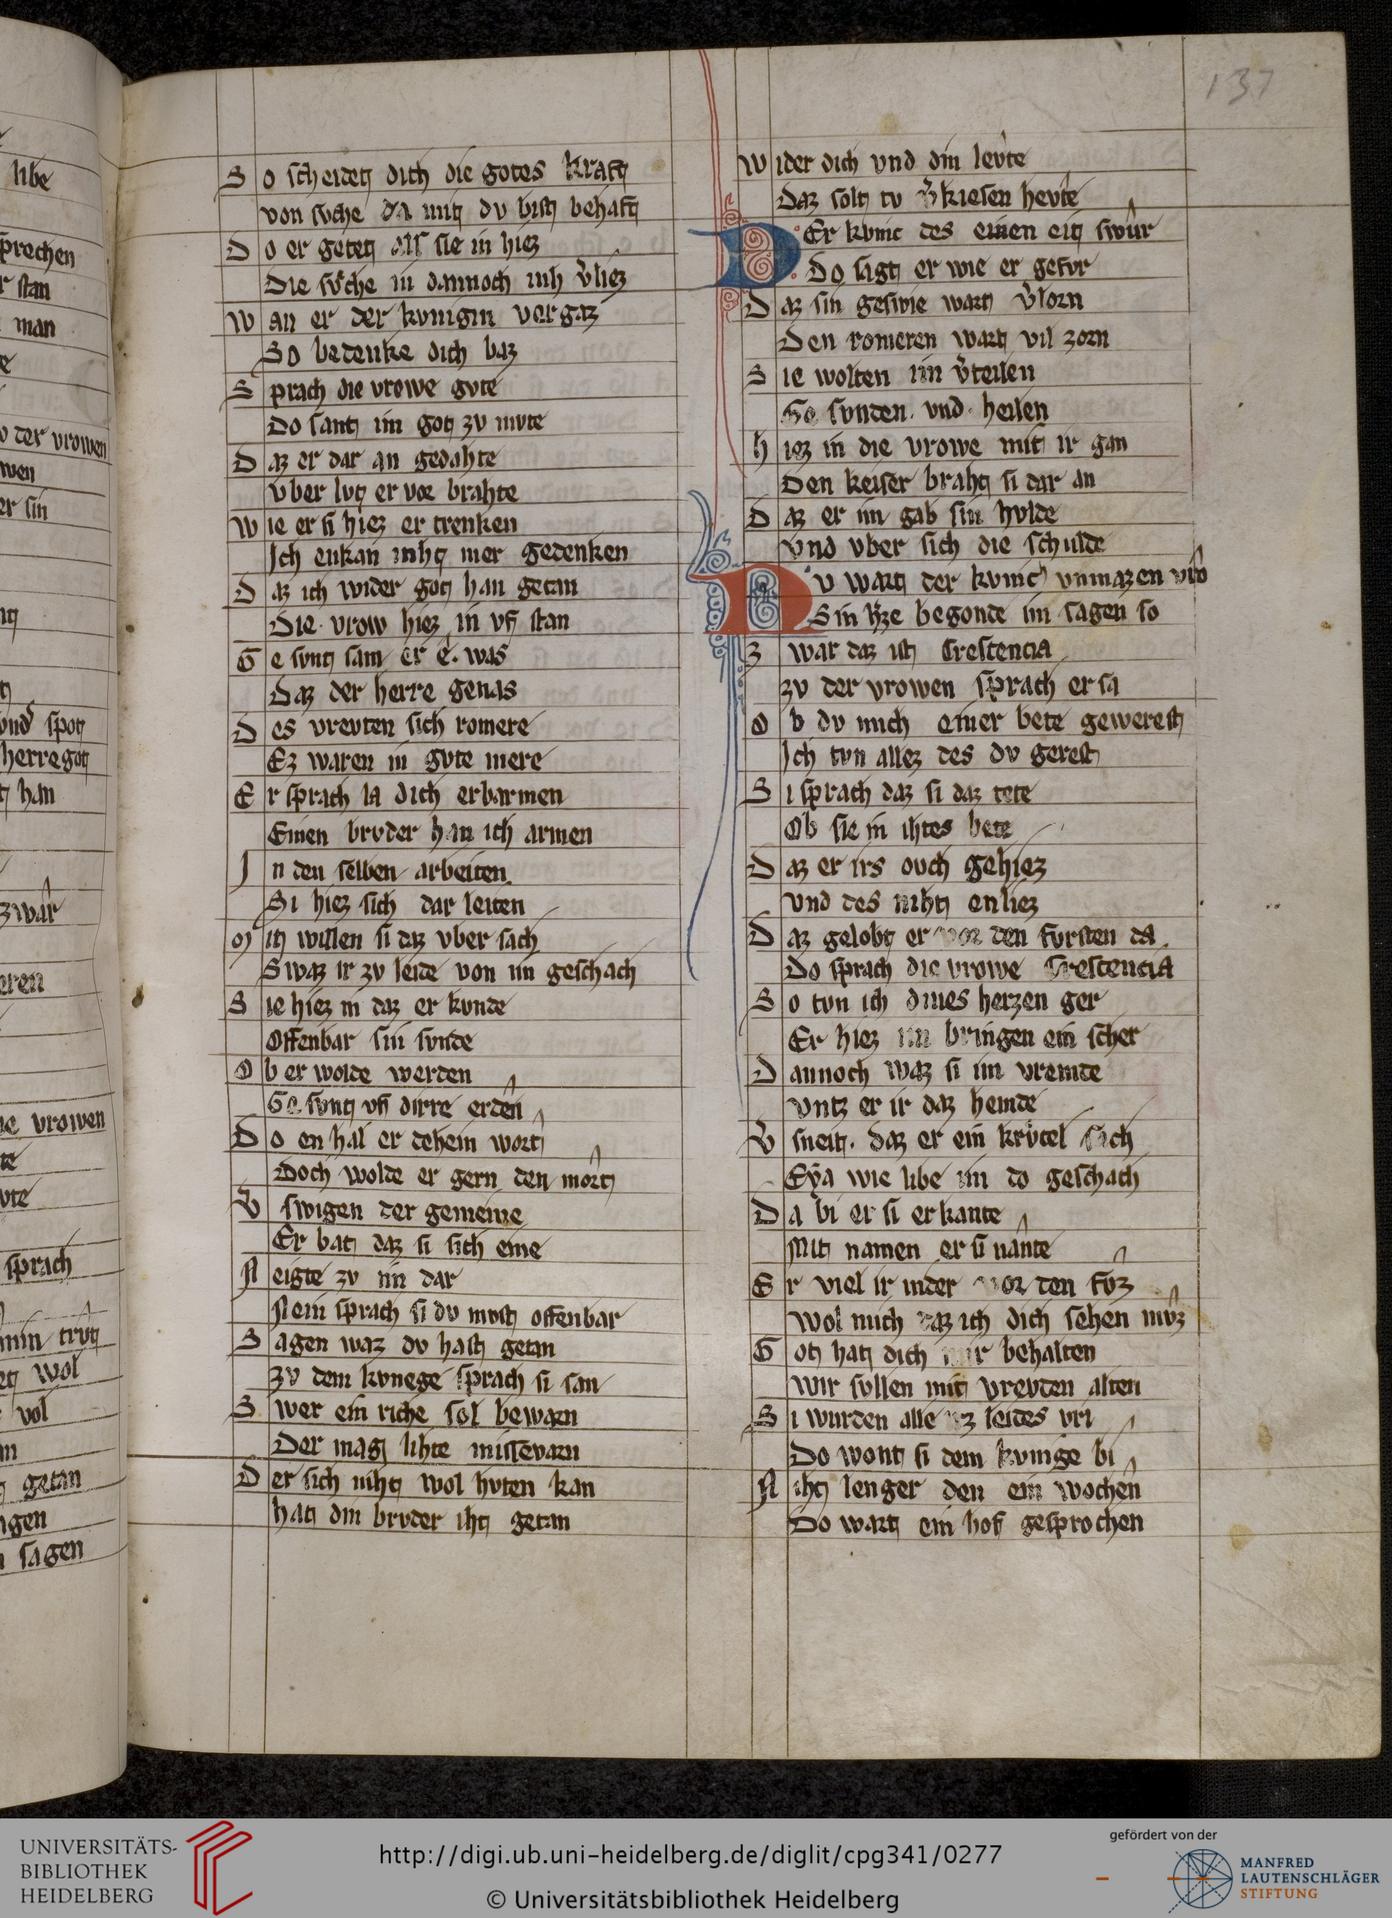 137
So scheidet dich die gotes kraft
von suche da mit du bist behaft
Do er getet als sie in hiez
Die suche in dannoch niht v̓liez
Wan er der kvnigin vergaz
So bedenke dich baz
Sprach die vrowe gvte
Do sant im got zv mvte
Daz er dar an gedahte
vber lvt er vor brahte
Wie er si hiez ertrenken
Ich enkan niht mer gedenken
Daz ich wider got han getan
Die vrow hiez in vf stan
Gesvnt sam er e. was
Daz der herre genas
Des vrevten sich romere
Ez waren in gvte mere
Er sprach la dich erbarmen
Einen brvder han ich armen
In den selben arbeiten
Si hiez sich dar leiten
Mit willen si daz vber sach
Swaz ir zv leide von im geschach
Sie hiez in daz er kvnde
Offenbar sin svnde
Ob er wolde werden
Gesvnt vf dirre erden
Do en hal er dehein wort
Doch wolde er gern den mort
V̓swigen der gemeine
Er bat daz si sich eine
Neigte zv im dar
Nein sprach si dv mvst offenbar
Sagen waz dv hast getan
zv dem kvnege sprach si san
Swer ein riche sol bewarn
Der mag lihte missevarn
Der sich niht wol hvten kan
hat din brvder iht getan
Wider dich vnd din levte
Daz solt tv v̓kiesen hevte
DEr kvnic des einen eit swur
Do sagt er wie er gefvr
Daz sin geswie wart v̓lorn
Den romeren wart vil zorn
Sie wolten im v̓teilen
Ge svnden. vnd. heilen
hiez in die vrowe mit ir gan
Den keiser braht si dar an
Daz er im gab sin hvlde
vnd vber sich die schulde
DV wart der kvnic vnmazen vro
Sin h̓ze begonde im sagen so
Zwar daz ist Crescencia
zv der vrowen sprach er sa
Ob dv mich einer bete gewerest
Ich tvn allez des dv gerest
Si sprach daz si daz tete
Ob sie in ihtes bete
Daz er irs ouch gehiez
vnd des niht enliez
Daz gelobt er vor den fvrsten da
Do sprach die vrowe Crescencia
So tvn ich dines herzen ger
Er hiez im bringen ein scher
Dannoch waz si im vremde
vntz er ir daz hemde
V̓sneit. daz er ein krvcel sach
Eya wie libe im do geschach
Da bi er si erkante
Mit namen er si nante
Er viel ir nider vor den fvz
Wol mich daz ich dich sehen mvz
Got hat dich mir behalten
Wir svllen mit vrevden alten
Si wurden alle vz leides vri
Do wont si dem kvnige bi
Niht lenger den ein wochen
Do wart ein hof gesprochen
libe
sprechen
stan
man
der vrowen
sin
vnd spot
herre got
han
zwar
vrowen
sprach
wol
vol
getan
sagen
UNIVERSITÄTS-
BIBLIOTHEK
HEIDELBERG
http://digi.ub.uni-heidelberg.de/diglit/cpg341/0277
© Universitätsbibliothek Heidelberg
gefördert von der
MANFRED
LAUTENSCHLÄGER
STIFTUNG